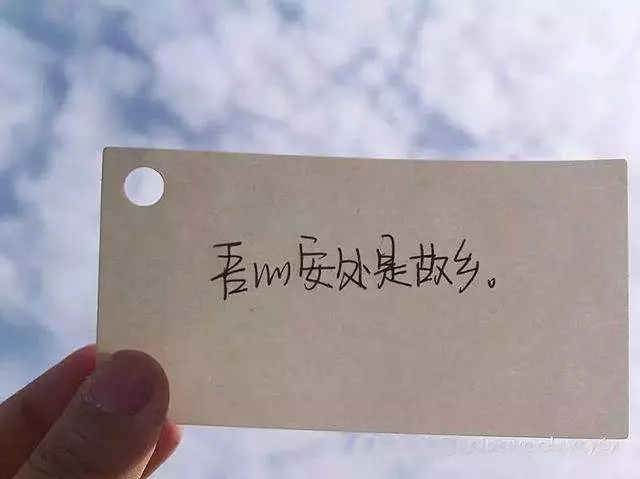 吾心安处是故乡。